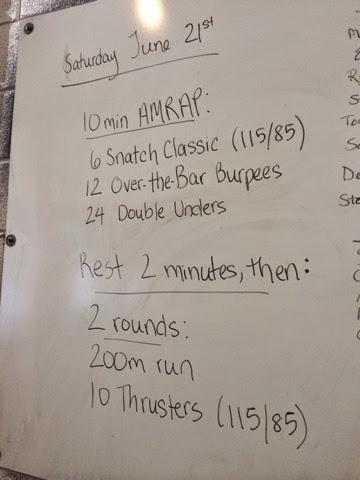 Saturday June 21st
10 min AMRAP:
6 Snatch Classic (115/85)
12 Over-the-Bar Burpees
24 Double Unders
Rest 2 minutes, then:
2 rounds:
200m run
10 Thrusters (115/85)